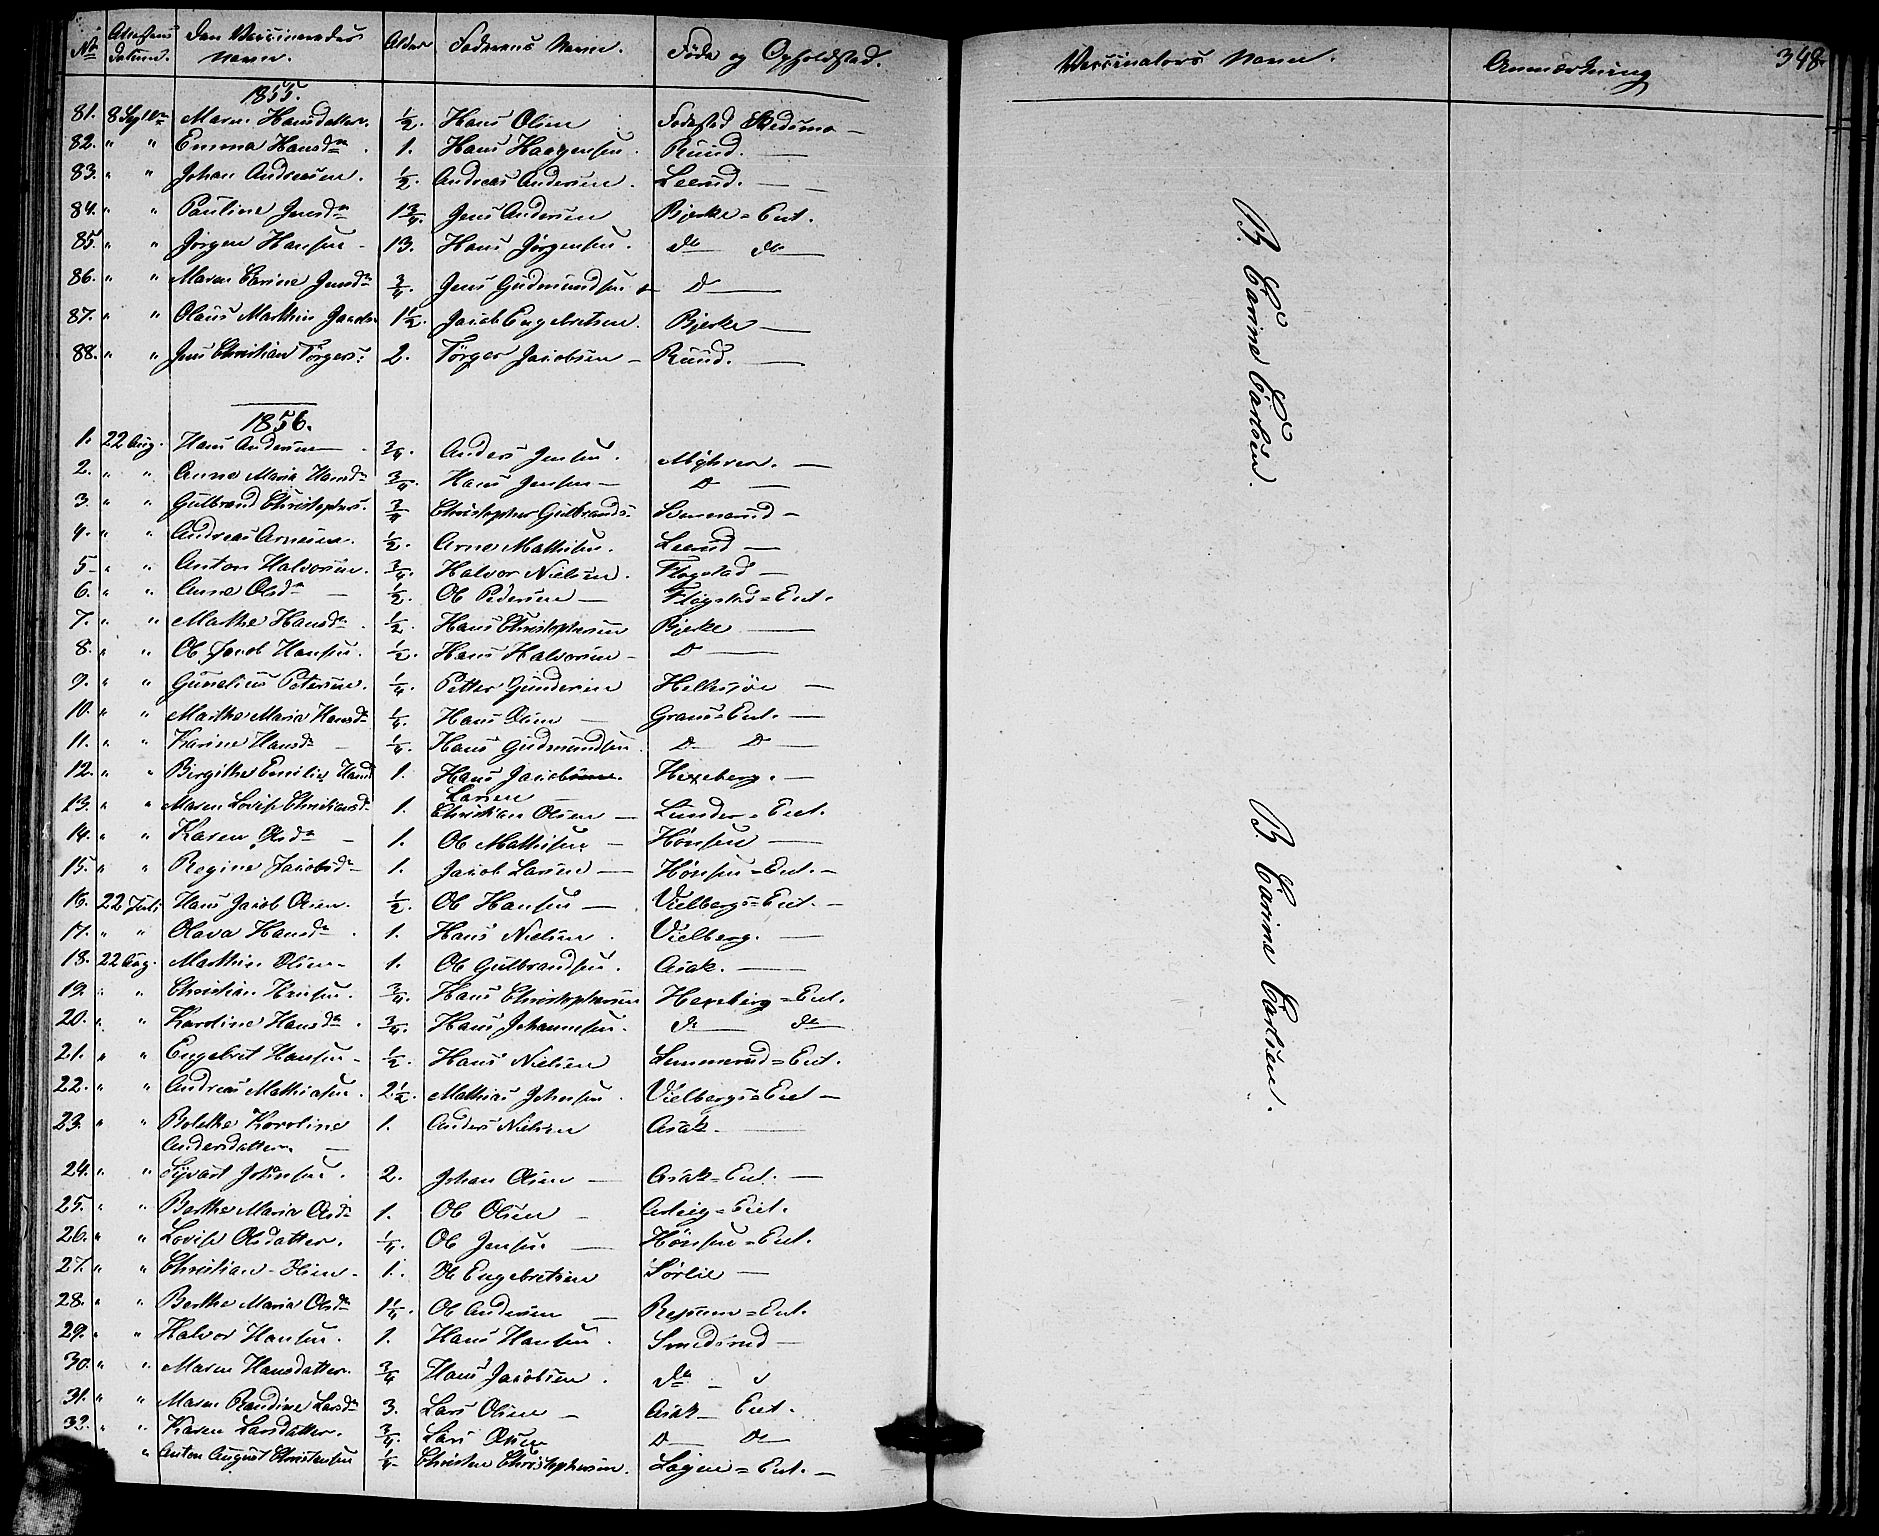 No Attestens Datum. Den Vaccineredes Navn. Alder Faderens Navn. Føde og Opholdsted. Vaccinators Navn. Anmærkning 348.
1855.
81. 8 Sept Maren Hansdatter. ½. Hans Olsen Fodestad Skedsmo —
82. " " Emma Hansdr. 1. Hans Haagensen. Ruud. —
83. " " Johan Andreasen. ½. Andreas Andersen. Leerud. —
84. " " Pauline Jensdr 1¾. Jens Andersen Bjerke=Eiet.
85. " " Jørgen Hansen - 13. Hans Jørgensen. do do —
86. " " Maren Karine Jensdr ¾. Jens Gudmundsen D —
87. " " Olaus Mathias Jacobs. 1½. Jacob Engebretsen. Bjerke —
88. " " Jens Christian Törgers: 2. Törger Jacobsen — Ruud. —
1856.
1. 22 Aug. Hans Andersen — ¾. Anders Jensen. Myhrer. —
2. " " Anne Maria Hansdr ¾. Hans Jensen — D —
3. " " Gulbrand Christophers. ¾ Christopher Gulbrands: —
4. " " Andreas Arnesen. ½. Arne Mathisen. Leerud —
5 - " " Anton Halvorsen. ¾. Halvor Nielsen. Flogstad —
6. " " Anne Olsdr — ½. Ole Pedersen — Flogstad=Eiet.
7. " " Mathe Hansdr. ½. Hans Christophersen Bjerke —
8. " " Ole Jacob Hansen. ½. Hans Halvorsen — D —
9. " " Gunelius Petersen. ¼. Petter Gundersen Hellesjøe —
10. " " Marthe Maria Hansdr ¼. Hans Olsen — Grans=Eiet. —
11. " " Karine Hansdr — ¼. Hans Gudmundsen. D D —
12. " " Birgithe Emilie Hansd 1. Hans Jacobsen. Hexeberg. —
Larsen
13. " " Maren Lovise Christiansdr 1. Christian Olsen — Lunder=Eiet.
14. " " Karen Olsdr — 1. Ole Mathisen — Hønsen —
15. " " Regine Jacobsdr — 1. Jacob Larsen — Hønsen=Eiet. -
16. 22 Juli Hans Jacob Olsen. ½. Ole Hansen — Vielbergs=Eiet. —
17. " " Olava Hansdr. 1. Hans Nielsen. Vielberg. —
18. 22 Aug. Mathias Olsen — 1. Ole Gulbrandsen. Asak. —
19. " " Christian Hansen. ¾. Hans Christophersen Hexeberg=Eiet.
20. " " Karoline Hansdr. ¾. Hans Johannesen. do — do
21. " " Engebret Hansen — ½. Hans Nielsen Lemmerud=Eiet.
22. " " Andreas Mathiasen. 2½. Mathias Johnsen. Vielbergs=Eiet —
23. " " Bolethe Karoline 1. Anders Nielsen Asak. —
Andersdatter. —
24. " " Syvart Johnsen. 2. Johan Olsen — Asak=Eiet. —
25. " " Berthe Maria Olsdr 1. Ole Olsen — =Eiet.
26. " " Lovise Olsdatter. ¼. Ole Jensen — Hönsen=Eiet.
27. " " Christian Olsen - 1. Ole Engebretsen Sørlie —
28. " " Berthe Maria Olsdr 1¼. Ole Andersen — =Eiet.
29. " " Halvor Hansen. 1. Hans Hansen. Smedsrud —
30. " " Maren Hansdatter. ¾ Hans Jacobsen. do —
31. " " Maren Randine Larsdr 3. Lars Olsen — Asak — Eiet.
32. " " Karen Larsdatter. ¾. Lars Olsen D do
" Anton August Christensen ¼ Christen Christophersen. =Eiet. —
B. Carine Carlsen.
B. Carine Carlsen.